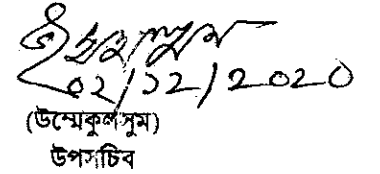 ০২/১২/২০২০
(উম্মেকুলসুম)
উপসচিব